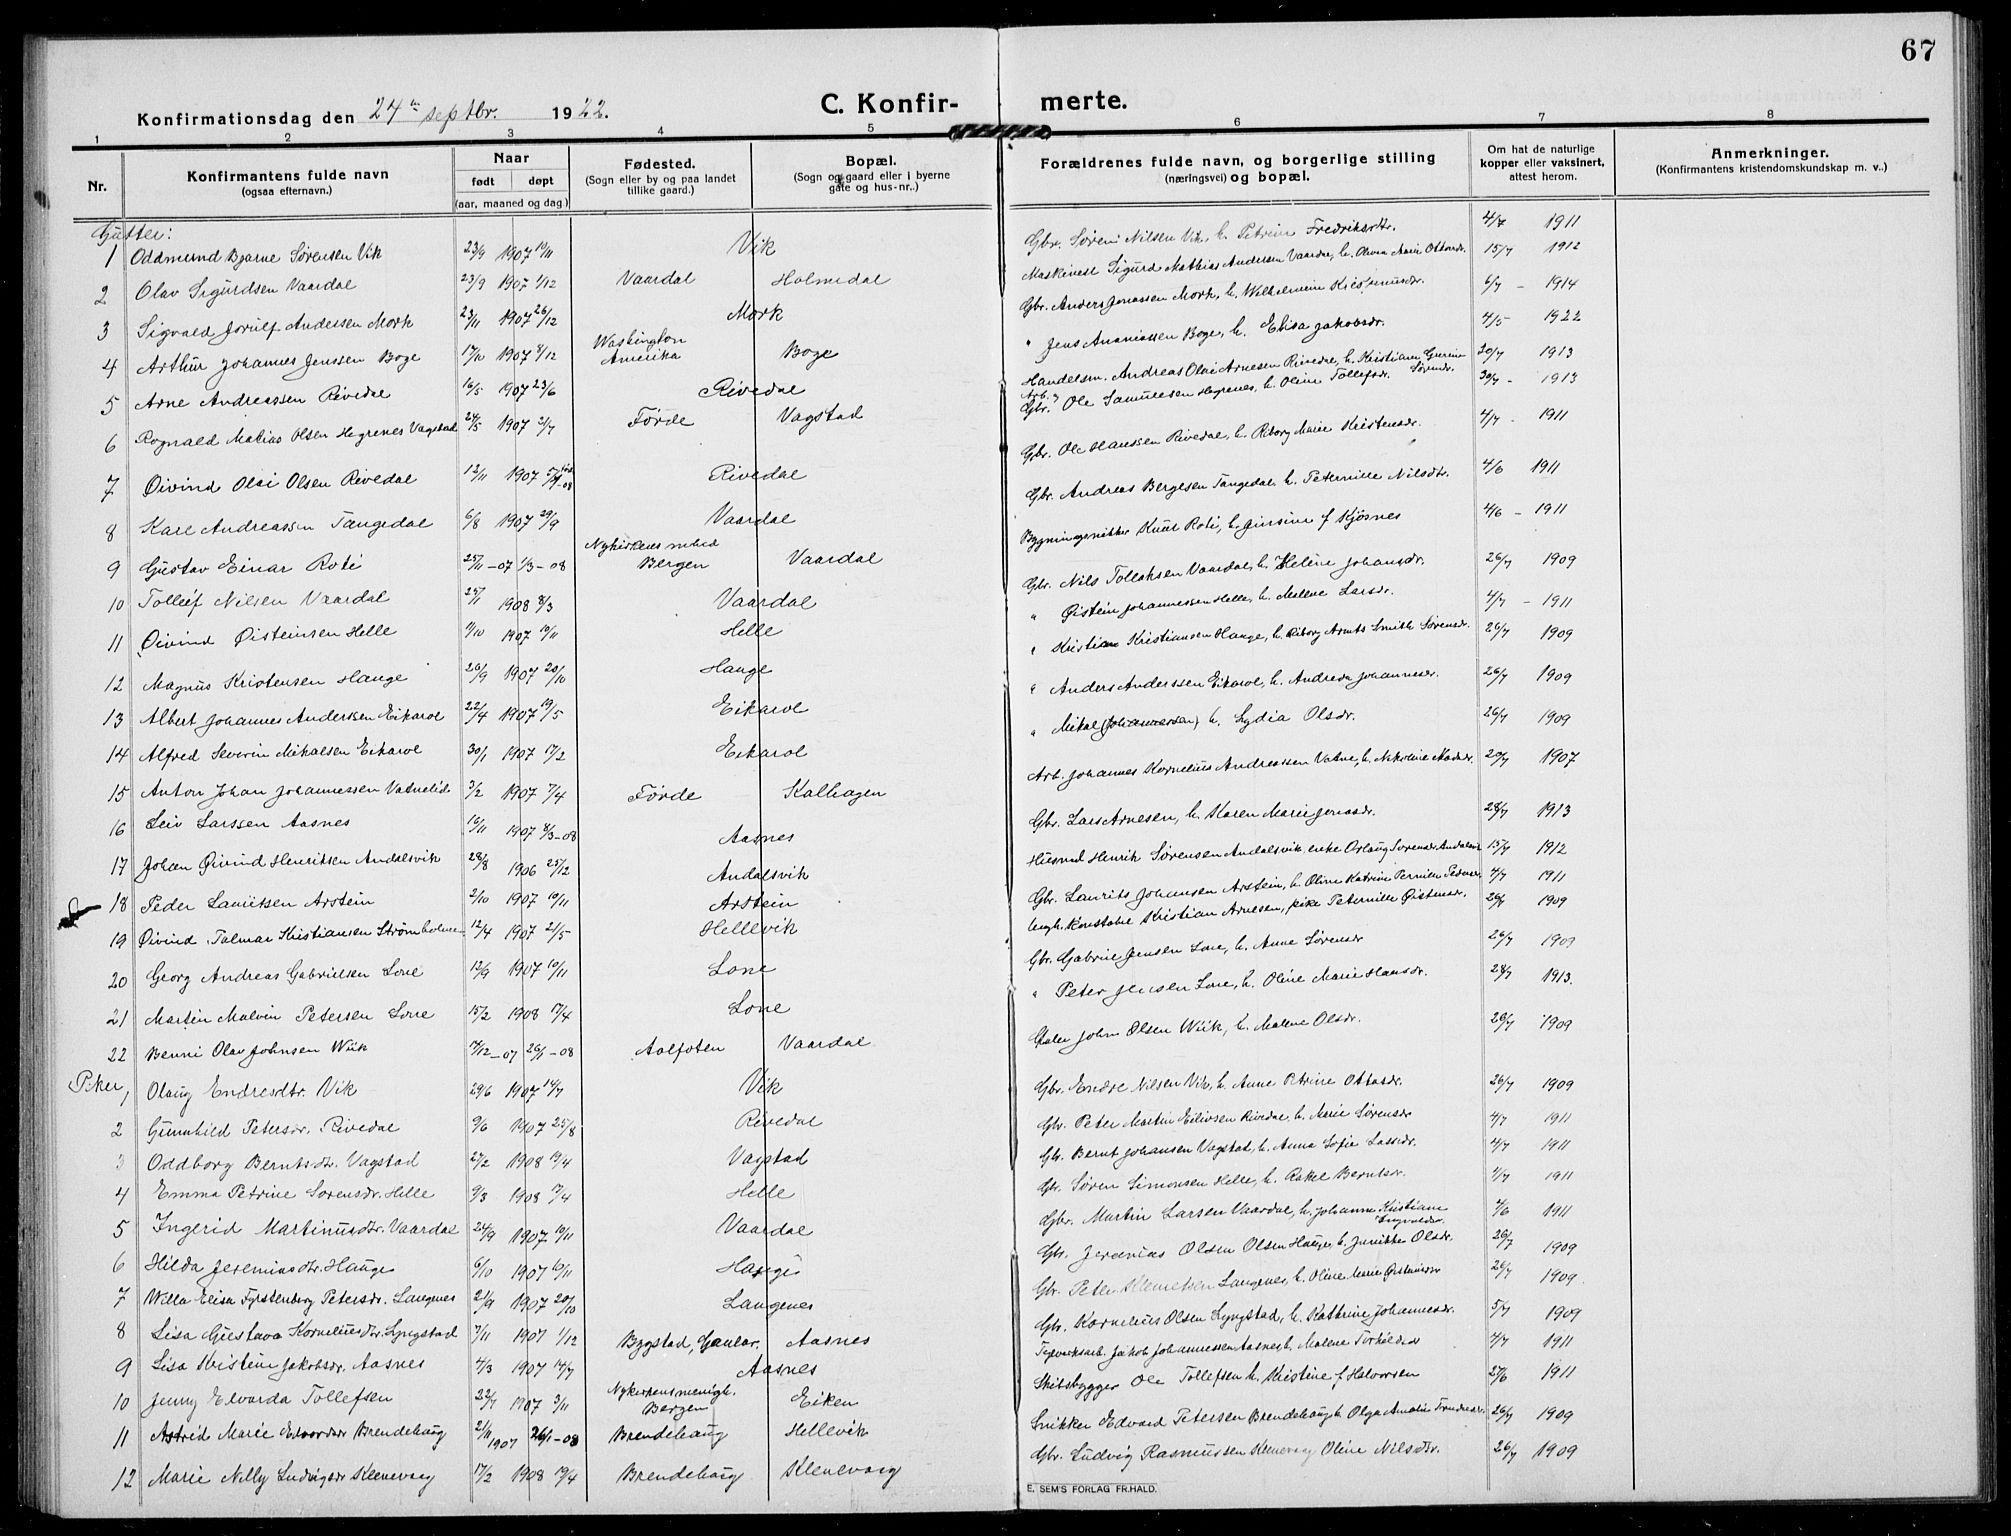 67
Konfirmationsdag den 24de septbr. 1922.
C. Konfirmerte.
1 2 3 4 5 6 7 8
Nr.
Konfirmantens fulde navn (ogsaa efternavn.)
Naar født døpt (aar, maaned og dag)
Fødested. (Sogn eller by og paa landet tillike gaard.)
Bopæl. (Sogn og gaard eller i byerne gate og hus-nr..)
Forældrenes fulde navn, og borgerlige stilling (næringsvei) og bopæl.
Om hat de naturlige kopper eller vaksinert, attest herom.
Anmerkninger. (Konfirmantens kristendomskundskap m. v..)
Gutter:
1 Oddmund Bjarne Sørensen Vik 23/9 1907 10/11 Vik Gbr. Søren Nilsen Vik, h. Petrine Fredriksdtr. 4/7 1911
2 Olav Sigurdsen Vaardal 23/9 1907 1/12 Vaardal Holmedal Sigurd Mathias Andersen Vaardal, h. Oliva Marie Ottosdr. 15/7 1912
3 Sigvald Jorulf Andersen Mork 23/11 1907 26/12 Mork Gbr. Anders Jonassen Mork, h. Wilhelmine 6/7 - 1914
4 Arthur Johannes Jenssen Boge 17/10 1907 8/12 Washington Amerika Boge " Jens Ananiassen Boge, h. Elisa Jakobsdr. 4/5 1922
5 Arne Andreassen Rivedal 16/5 1907 23/6 Rivedal Handelsm. Andreas Olai Arnesen Rivedal, h. Kristiane Gurine Sørensdr. 30/7 1913
6 Rognald Matias Olsen Hegrenes Vagstad 24/5 1907 2/7 Førde Vagstad Arb. og Gbr. Ole Samuelsen Hegrenes, h. Oline Tollefsdr. 30/7 - 1913
7 Øivind Olai Olsen Rivedal 12/11 1907 Rivedal Gbr. Ole Hanssen Rivedal, h. Riborg Marie Kristensdr. 4/7 - 1911
8 Kare Andreassen Tangedal 6/8 1907 29/9 Vaardal Gbr. Andreas Bergesen Tangedal h. Peternille Nilsdtr. 4/6 1911
9 Gustav Einar Roti 25/11 -07 1/3-08 Nykirkens mhed Bergen Vaardal Bygningsnikker Knut Roti, h. Jinsine f Kjøsnes 4/6 - 1911
10 Tollef Nilsen Vaardal 25/1 1908 8/3 Vaardal Gbr. Nils Tollaksen Vaardal, h. Helene Johansdr. 26/7 1909
11 Øivind Øisteinsen Helle 11/10 1907 10/11 Helle " Øistein Johannessen Helle, h. Malene Larsdr. 4/7 - 1911
12 Magnus Kristensen Hauge 26/9 1907 20/10 Hauge " Kristian Kristiansen Hauge, h. Riborg Smith Sørensdr. 26/7 1909
13 Albert Johannes Anderssen Eikarol 22/4 1907 19/5 Eikarol " Anders Anderssen Eikarol, h. Andrea Johannesdr. 26/7 1909
14 Alfred Severin Mikalsen Eikarol 30/1 1907 17/2 Eikarol " Mikal (Johannessen) h. Lydia Olsdr. 26/7 1909
15 Anton Johan Johannessen Vatnelid 3/2 1907 7/4 Førde Kalhagen Arb. Johannes Kornelius Andreassen Vatne, h. Nikoline 20/7 1907
16 Leiv Larssen Aasnes 16/11 1907 8/3-08 Aasnes Gbr. Lars Arnesen, h. Karen Marie Jonasdr. 28/7 1913
17 Johan Øivind Henriksen Andalsvik 28/8 1906 25/12 Andalsvik Husmd Henrik Sørensen Andalsvik, enke Sørensdr. Andalsvik 15/7 1912
18 Peder Lauritsen Arstein 2/10 1907 10/11 Arstein Gbr. Laurits Johansen Arstein, h. Oline Katrine Pernille 4/7 1911
19 Øivind Talmar Kristiansen Strømholmen 12/4 1907 21/5 Hellevik Ungk. Konstabel Kristian Arnesen, pike Peternille 26/7 1909
20 Georg Andreas Gabrielsen Lone 12/9 1907 10/11 Lone Gbr. Gabriel Jensen Lone, h. Anne Sørensdr 26/7 1909
21 Martin Malvin Petersen Lone 15/2 1908 17/4 Lone " Peter Jensen Lone, h. Oline Marie Hansdr. 28/7 1913.
22 Benni Olav Johnsen Wiik 17/12-07 26/1-08 Aalfoten Vaardal John Olsen Wiik, h. Malene Olsdr. 26/7 1909
Piker,
1 Olaug Endresdtr. Vik 29/6 1907 14/7 Vik Gbr. Endre Nilsen Vik, h. Anne Petrine Ottosdr. 26/7 1909
2 Gunnhild Petersdr. Rivedal 9/6 1907 25/8 Rivedal Gbr. Peter Martin Eilivsen Rivedal, h. Marie Sørensdr 4/7 1911
3 Oddborg Berntsdtr. Vagstad 27/2 1908 19/4 Vagstad Gbr. Bernt Johansen Vagstad, h. Anna Sofie Lassedr. 4/7 1911
4 Emma Petrine Sørensdr. Helle 9/3 1908 17/4 Helle Gbr. Søren Simonsen Helle, h. Rakel Berntsdr. 4/7 1911
5 Ingerid Martinusdtr. Vaardal 24/9 1907 10/11 Vaardal Gbr. Martin Larsen Vaardal, h. Johanne Kristiane Ingvaldsdr. 4/6 1911
6 Hilda Jeremiasdtr. Hauge 6/10 1907 10/11 Hauge Gbr. Jeremias Olsen Olsen Hauge, h. Jinikke Olsdr. 26/7 1909
7 Willa Elisa Fyrstenborg Petersdr. Langenes 21/9 1907 20/10 Langenes Gbr. Peter Klemetsen Langenes, h. Oline Marie 26/7 1909.
8 Lisa Gustava Kornelius dtr. Lyngstad 7/11 1907 1/12 Bygstad, Gaular. Aasnes Gbr. Kornelius Olsen Lyngstad, h. Kathrine Johannesdr. 5/7 1909
9 Lisa Kristine Jakobsdr. Aasnes 4/3 1907 14/7 Aasnes Jakob Johannessen Aasnes h. Malene 4/7 1911
10 Jenny Elvarda Tollefsen 22/7 1907 3/11 Nykirkens menigh. Bergen Eiken Skibsbygger Ole Tollefsen h. Kristine f Halvorsen 27/6 1911
11 Astrid Marie Edvardsdr Brendehaug 21/11 1907 26/1-08 Brendehaug Hellevik Snikker Edvard Petersen Brendehaug h. Olga Amalie 26/7 1909
12 Marie Nelly Ludvigsdr Klenevaag 17/2 1908 19/4 Brendehaug Klenevaag Gbr. Ludvig Rasmussen Klenevaag Oline Nilsdtr. 26/7 1909
E. SEM'S FORLAG FR.HALD.